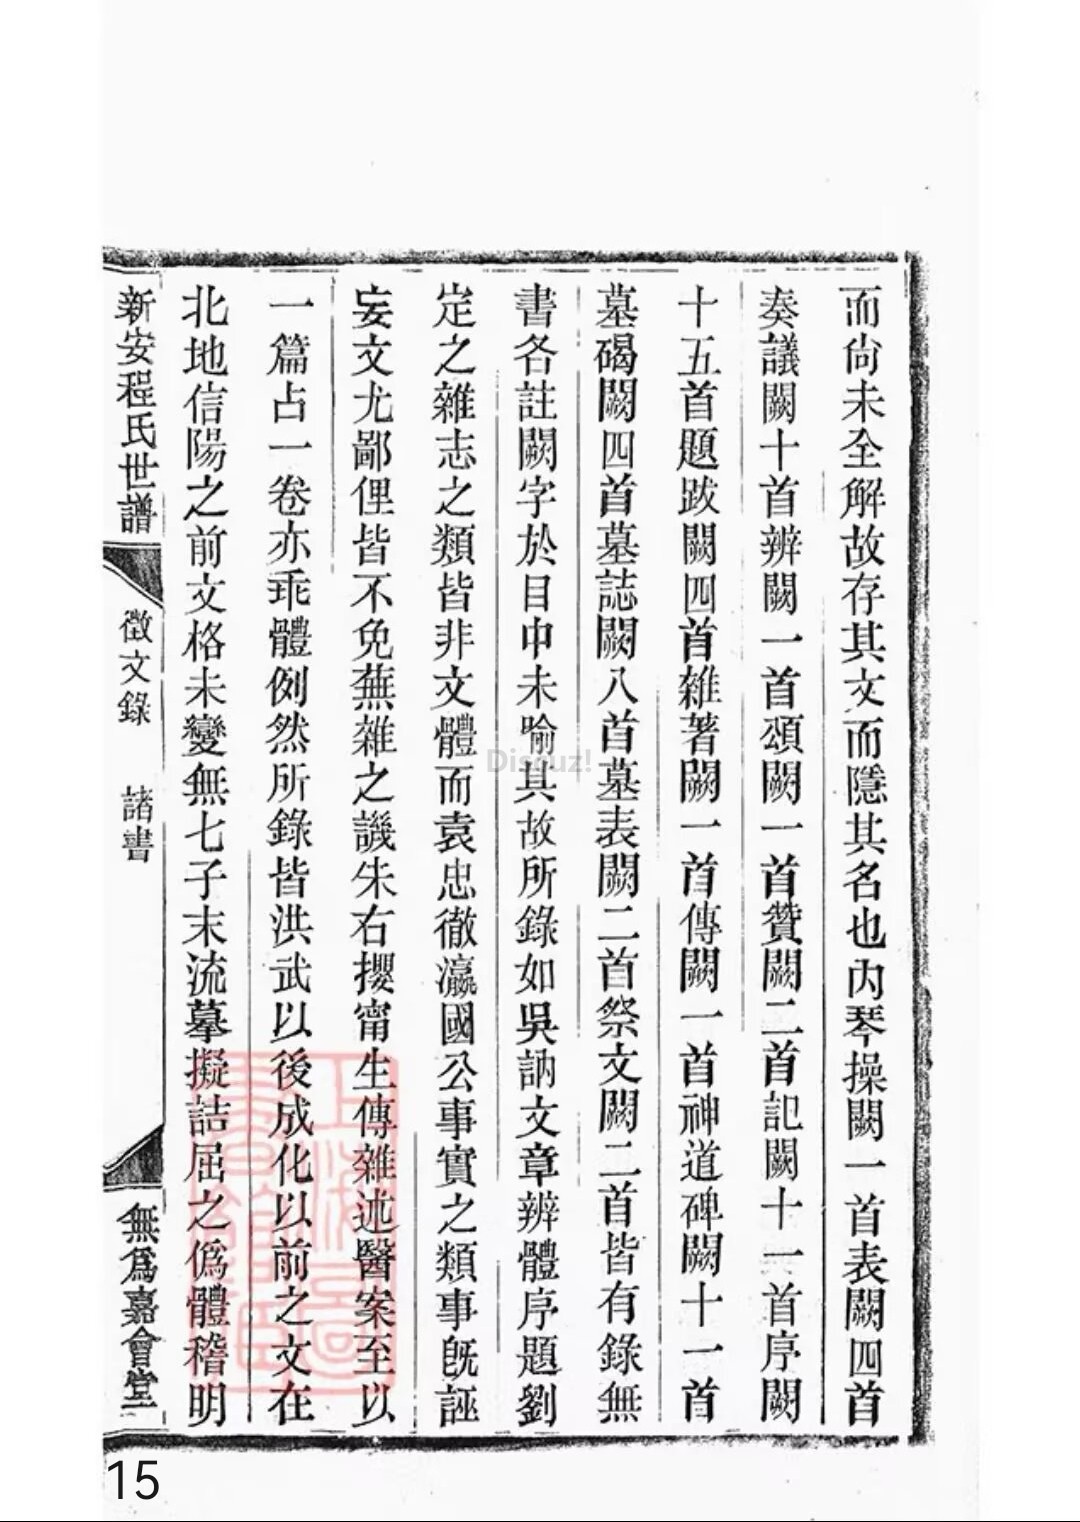 而尙未全解故存其文而隱其名也內琴操闕一首表闕四首
奏議闕十首辨闕一首頌闕一首贊闕二首記闕十一首序闕
十五首題跋闕四首雜著闕一首傳闕一首神道碑闕十一首
墓碣闕四首墓誌闕八首墓表闕二首祭文闕二首皆有錄無
書各註闕字於目中未喻其故所錄如吳訥文章辨體序題劉
定之雜志之類皆非文體而袁忠徹瀛國公事實之類事旣誣
妄文尤鄙俚皆不免蕪雜之譏朱右攖甯生傳雜述醫案至以
一篇占一卷亦乖體例然所錄皆洪武以後成化以前之文在
北地信陽之前文格未變無七子末流摹擬詰屈之僞體稽明
新安程氏世譜
徵文錄 諸書
無爲嘉會堂
Discuz!
15